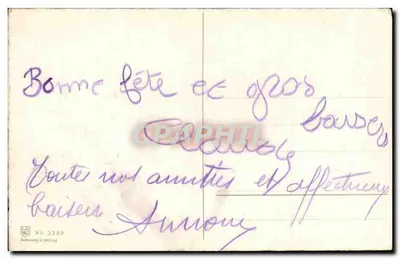 Bonne fête et gros
baisers
Claude
Toutes nos amitiés et affectueux
baisers
CPAPHIL
Nr. 2399